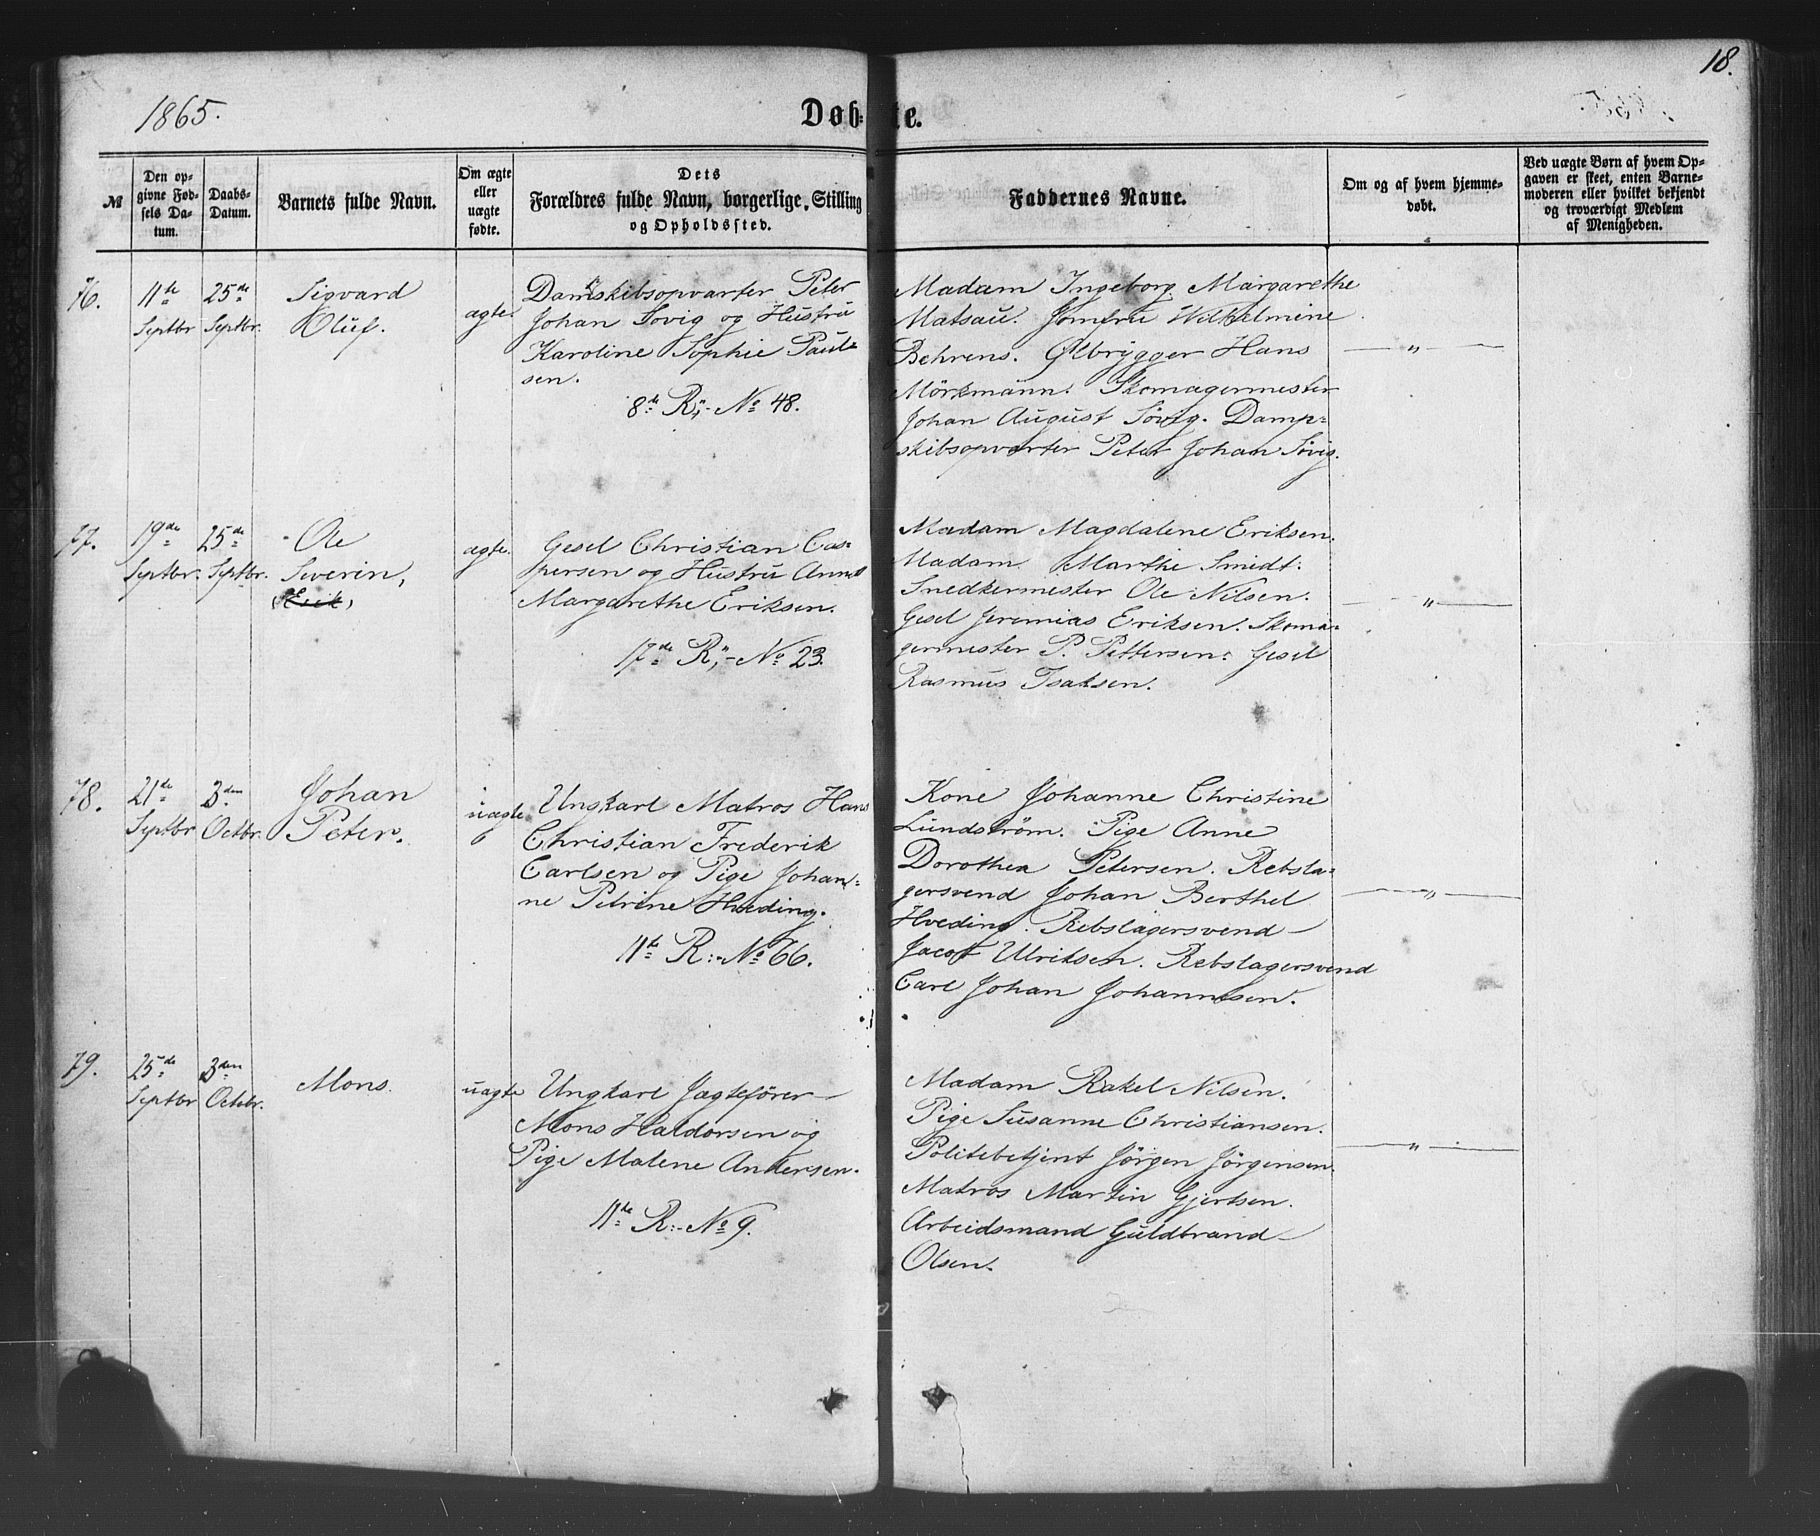 18.
1865.
Døb-te.
№
Den op-
givne Fød-
sels Da-
tum.
Daabs-
Datum.
Barnets fulde Navn.
Om ægte
eller
uægte
fødte.
Dets
Forældres fulde Navn, borgerlige Stilling
og Opholdssted.
Faddernes Navne.
Om og af hvem hjemme-
døbt.
Ved uægte Børn af hvem Op-
gaven er skeet, enten Barne-
moderen eller hvilket bekjendt
og troværdigt Medlem
af Menigheden.
76.
11te
Septbr
25de
Septbr.
Sigvard
Oluf.
ægte.
Damskibsopvarter Peter
Johan Søvig og Hustru
Karoline Sophie Paul-
sen.
8de R;- No 48.
Madam Ingeborg Margarethe
Matsau. Jomfru Wilhelmine
Behrens. Ølbrygger Hans
Mörkmann. Skomagermester
Johan August Søvig. Damp-
skibsopvarter Peter Johan Søvig.
— " —
77.
19de
Septbr.
25de
Septbr.
Ole
Severin,
(Erik)
ægte.
Gesel Christian Cas-
persen og Hustru Anne
Margarethe Eriksen.
17de R;- No 23.
Madam Magdalene Eriksen.
Madam Marthe Smidt.
Snedkermester Ole Nilsen.
Gesel Jeremias Eriksen. Skoma-
germester P. Pettersen. Gesel
Rasmus Isaksen.
— " —
78.
21de
Septbr
3den
Octbr.
Johan
Peter.
uægte
Ungkarl Matros Hans
Christian Frederik
Carlsen og Pige Johan-
ne Petrine Hveding.
11te R:- No 66.
Kone Johanne Christine
Lundström. Pige Anne
Dorothea Petersen. Rebsla-
gersvend Johan Berthel
Hveding. Rebslagersvend —
Jacob Ulriksen. Rebslagersvend
Carl Johan Johannesen.
— " —
79.
25de
Septbr
3den
Octbr.
Mons.
uægte
Ungkarl Jagtefører —
Mons Haldorsen og
Pige Malene Andersen.
11te R:- No 9.
Madam Rakel Nilsen.
Pige Susanne Christiansen.
Politibetjent Jörgen Jörgensen.
Matros Martin Gjertsen.
Arbeidsmand Guldbrand —
Olsen.
— " —